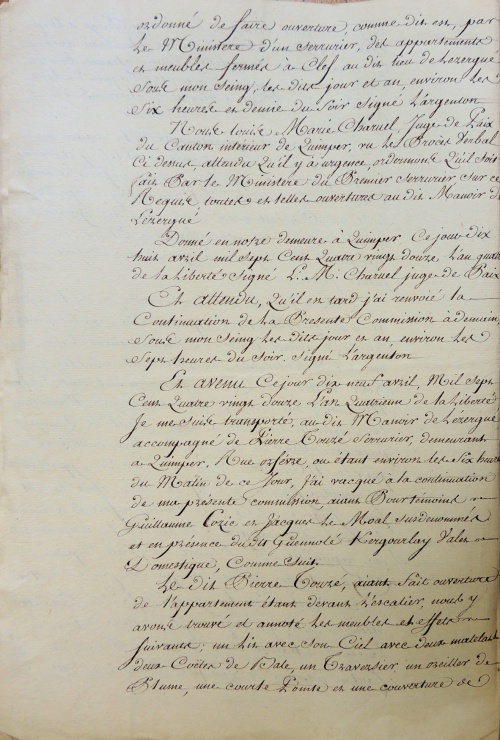 ordonné de faire ouverture, comme dit est, par
Le Ministere d'un serrurier, des appartements
et meubles fermés à Clef au dit lieu de Lezergué
Sous mon Seing, les dits jour et an, environ les
Six heures et demie du Soir Signé Largenton
Nous Louis Marie Charuel, Juge de Paix
du Canton intérieur de Quimper, vu le Procès Verbal
Ci dessus, attendu qu'il y à urgence, ordonnons qu'il sois
fait Par le Ministere du Premier serrurier, sur ce
Requis toutes et telles ouvertures au dit Manoir de
Lezergué
Donné en notre demeure à Quimper Ce jour dix
huit avril mil sept Cent Quatre vingt douze, L'an quatre
de la liberté, Signé L. M. Charuel juge de Paix
Et attendu, qu'il en tard j'ai renvoié la
Continuation de la Presente Commission à demain
Sous mon Seing les dits jour et an environ les
Sept heures du Soir. Signé Largenton
Et avenu Ce jour dix neuf avril, Mil sept
Cent Quatre vingt douze L'an Quatrieme de la liberté
Je me suis transporté, au dit Manoir de Lezergué
accompagné de Pierre Touzé Serrurier, demeurant
a Quimper, Rue orfévre, ou étant environ les Six heures
du Matin de ce Jour, J'ai vacqué à la continuation
de ma présente commission, aiant Pour temoins
Guillaume Cozic et Jacques Le Moal susdenommés
et en présence du dit Guennolé Kergourlay Valet
Domestique, Comme Suit.
Le dit Pierre Touzé, aiant fait ouverture
de l'appartement étant devant L'escalier, nous y
avons trouvé et annoté les meubles et effets
suivants; un lit avec son Ciel avec deux matelats
deux Coëtes de Bale, un Traversier un oreiller de
Plume, une courte Pointe et une couverture de